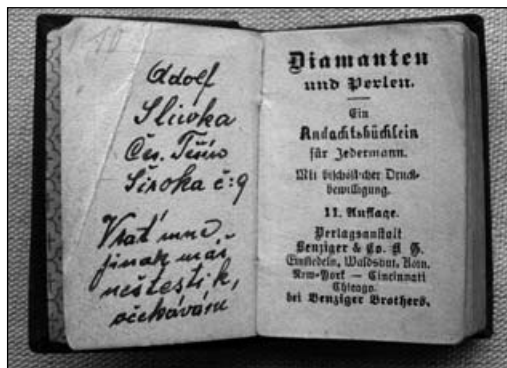 Adolf
Slivka
Čes. Těšín
Široka č:9
Vrať mne,
jinak máš
neštestí k,
očekávání
Diamanten
und Perlen.
Ein
Andachtsbüchlein
für Jedermann.
Mit bischöflicher Druck-
bewilligung.
11. Auflage.
Verlagsanstalt
Benziger & Co. A. G.
Einsiedeln, Waldshut, Köln.
New-York — Cincinnati
Chicago.
bei Benziger Brothers.